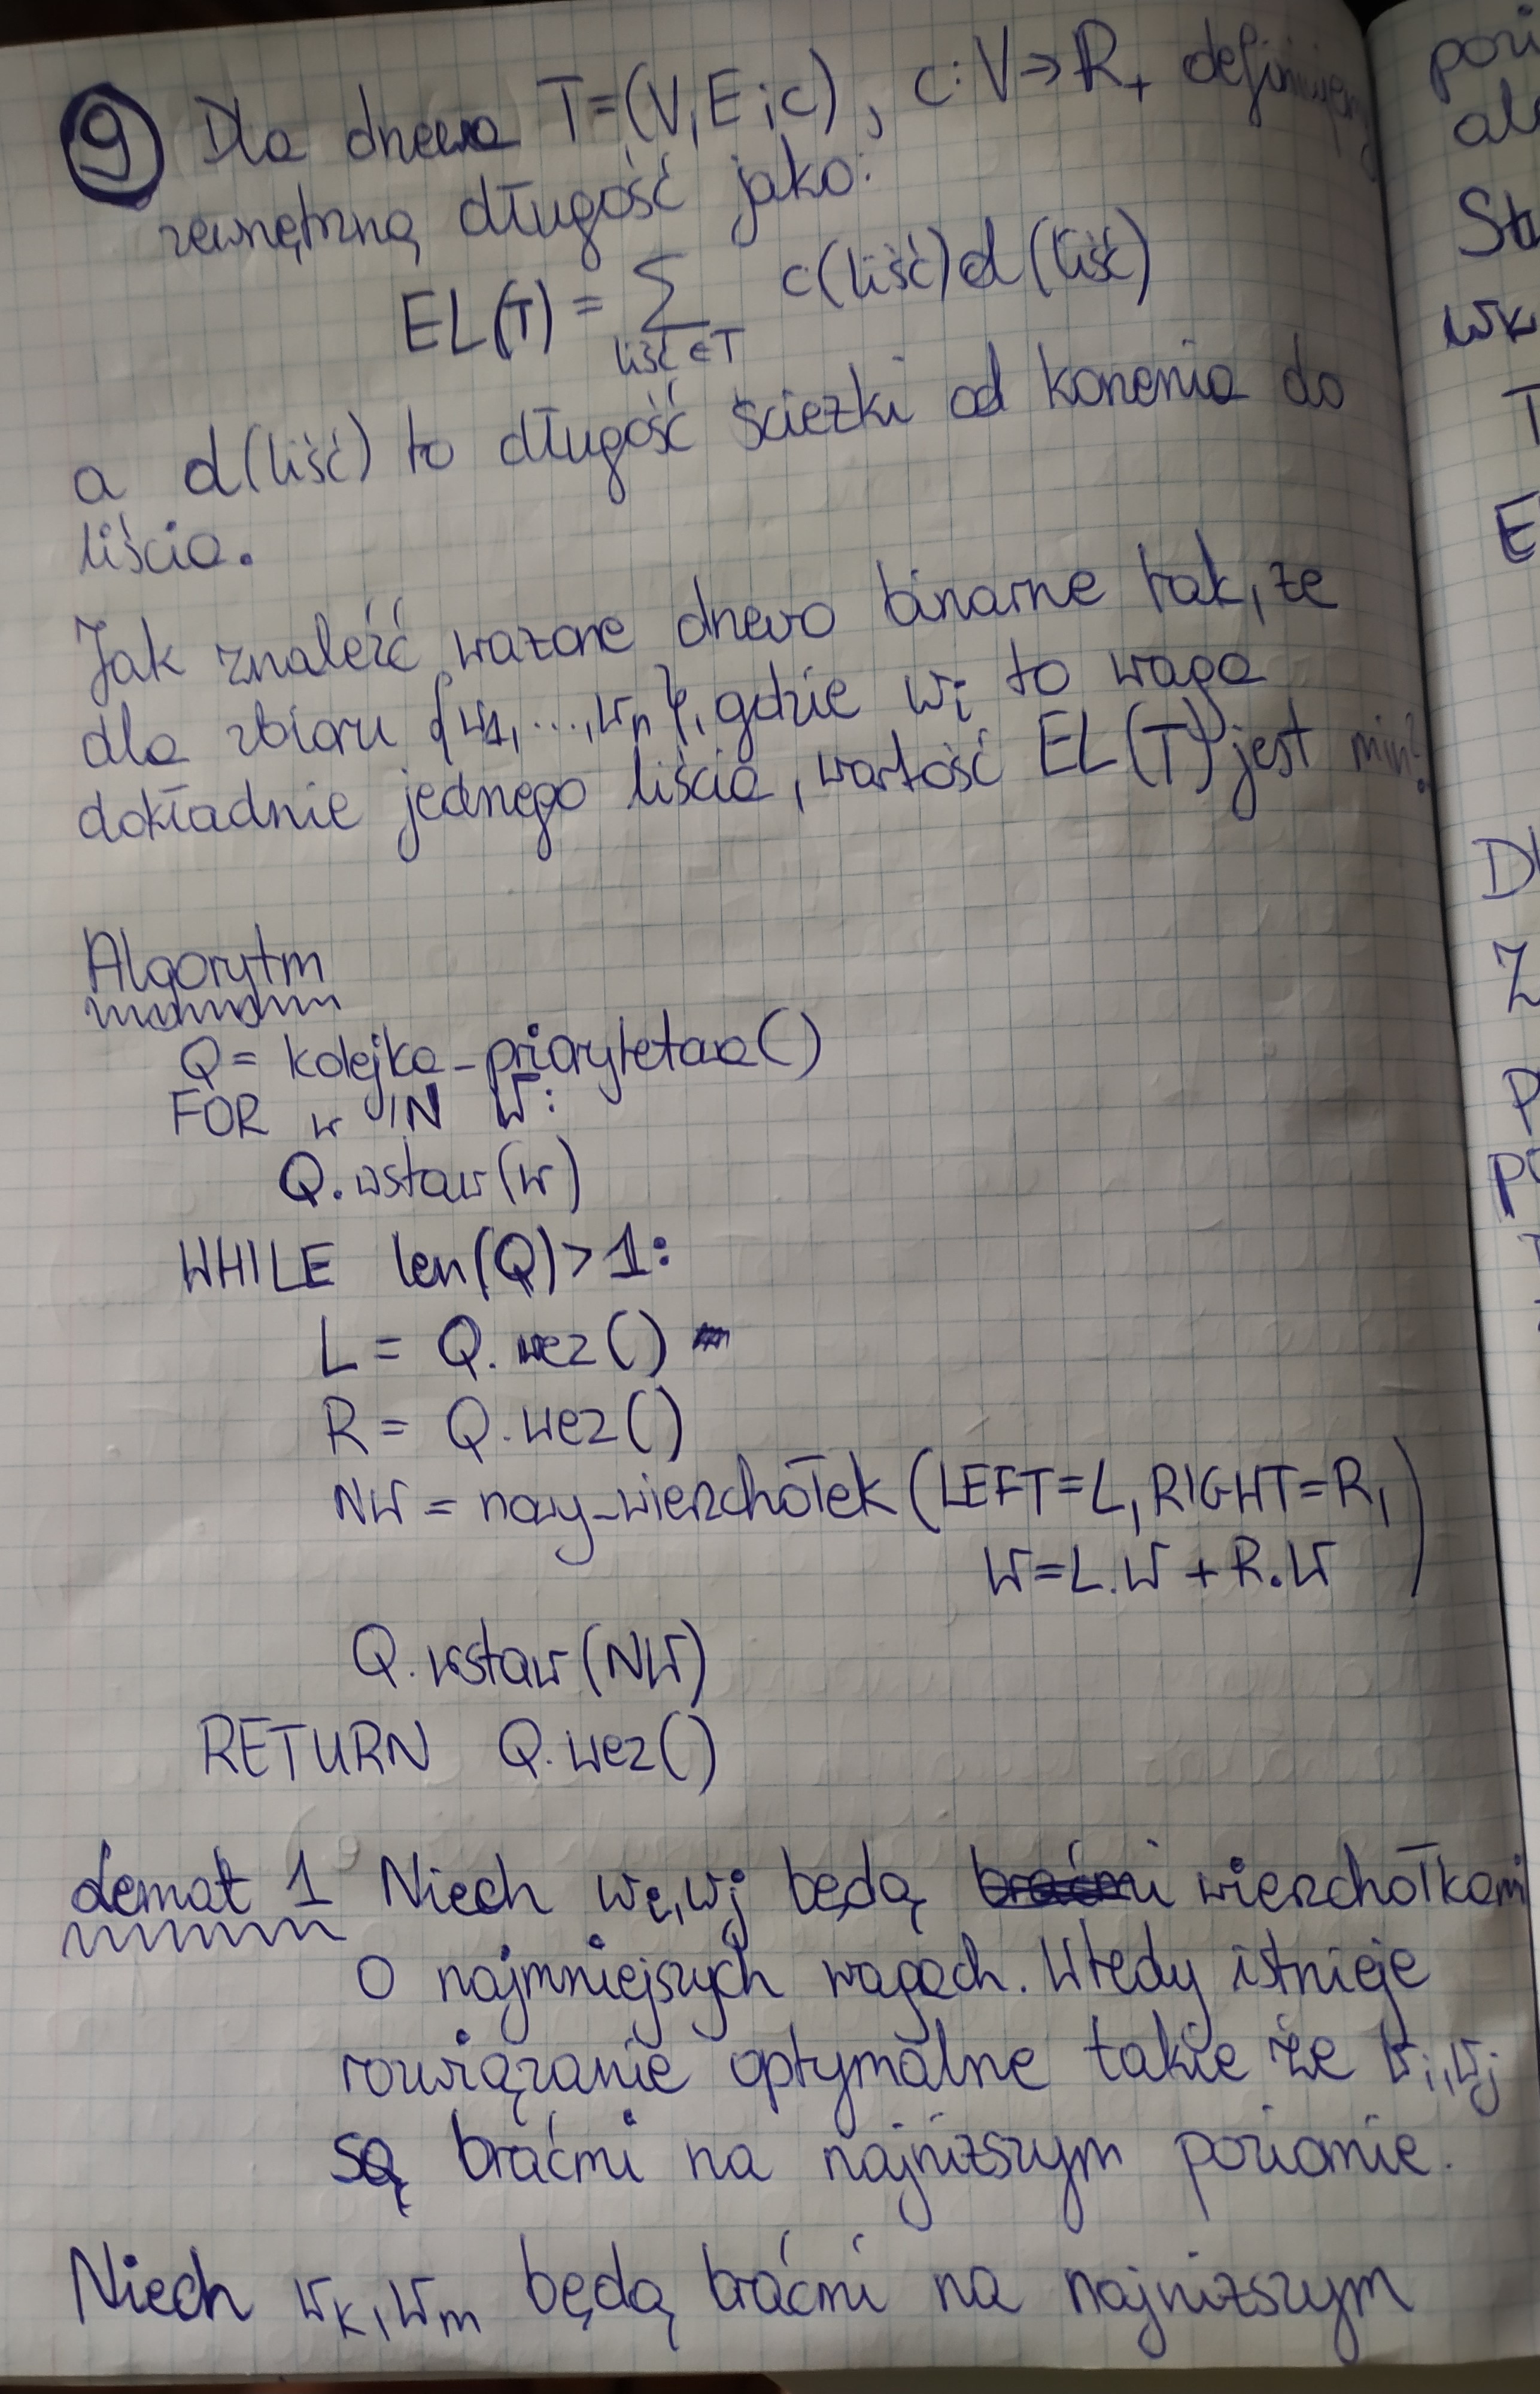 9 Dla drzewa T=(V,E;c), c:V→R₊ definiujemy
zewnętrzną długość jako:
EL(T) = ∑ c(liść)d(liść)
liść∈T
a d(liść) to długość ścieżki od korzenia do
liścia.
Jak znaleźć ważone drzewo binarne tak, że
dla zbioru {w₁,...,wₙ}, gdzie wᵢ to waga
dokładnie jednego liścia, wartość EL(T) jest min?
Algorytm
Q= kolejka_priorytetowa()
FOR w IN W:
Q.wstaw(w)
WHILE len(Q)>1:
L = Q.wez()
R = Q.wez()
NW = nowy_wierzchołek(LEFT=L, RIGHT=R,
W=L.W + R.W)
Q.wstaw(NW)
RETURN Q.wez()
Lemat 1 Niech wᵢ,wⱼ będą braćmi wierzchołkami
o najmniejszych wagach. Wtedy istnieje
rozwiązanie optymalne takie że wᵢ,wⱼ
są braćmi na najniższym poziomie.
Niech wₖ,wₘ będą braćmi na najniższym
pozi